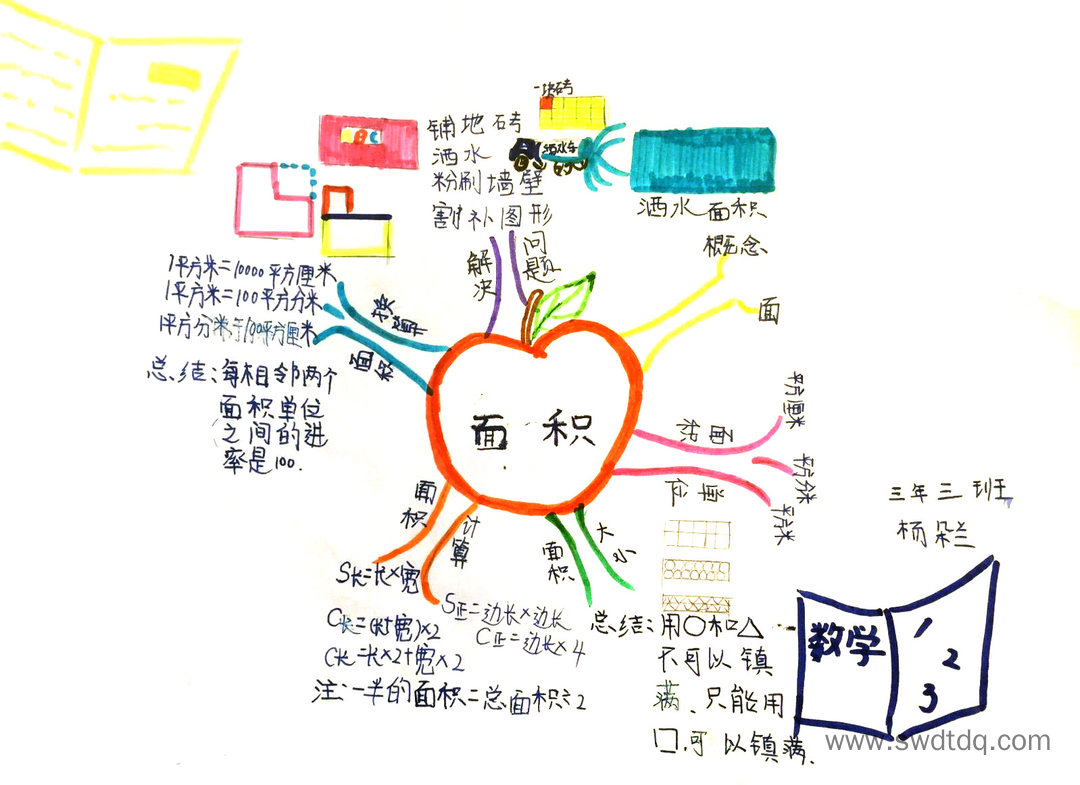 一块砖
铺地砖
洒水
粉刷墙壁
割补图形
洒水车
洒水面积
解决
问题
概念
面
1平方米=10000平方厘米
1平方米=100平方分米
1平方分米=100平方厘米
面积
换算
总结:每相邻两个
面积单位
之间的进
率是100.
面积
面积
单位
平方厘米
平方分米
平方米
面积
计算
S长=长×宽
C长=(长+宽)×2
C长=长×2+宽×2
S正=边长×边长
C正=边长×4
注:一半的面积=总面积÷2
面积
大小
总结:用○和△
不可以镇
满、只能用
□可以镇满.
三年三班
数学
1
2
3
www.swdtdq.com